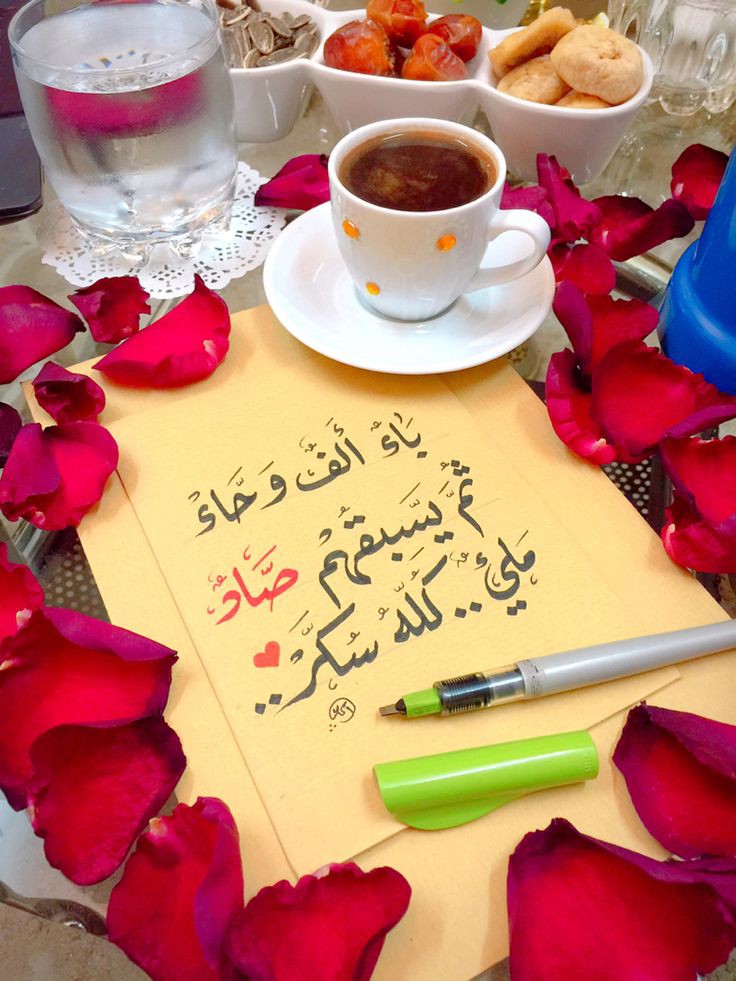 بَاءٌ أَلفٌ وَ حَّاءْ
ثُمَّ يسَّبقهُمْ صَّادٌ
مَليءٌ .. كُلّهُ سُكرَّ ..